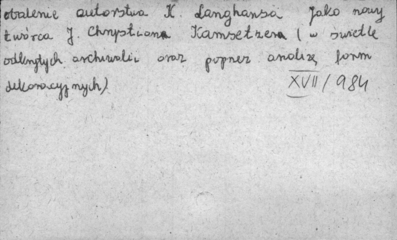 obalenie autorstwa K. Langhansa jako nowy
twórca J. Chrystiana Kamsetzera (w świetle
odkrytych archiwaliów oraz poprzez analizę form
dekoracyjnych)
XVII/984